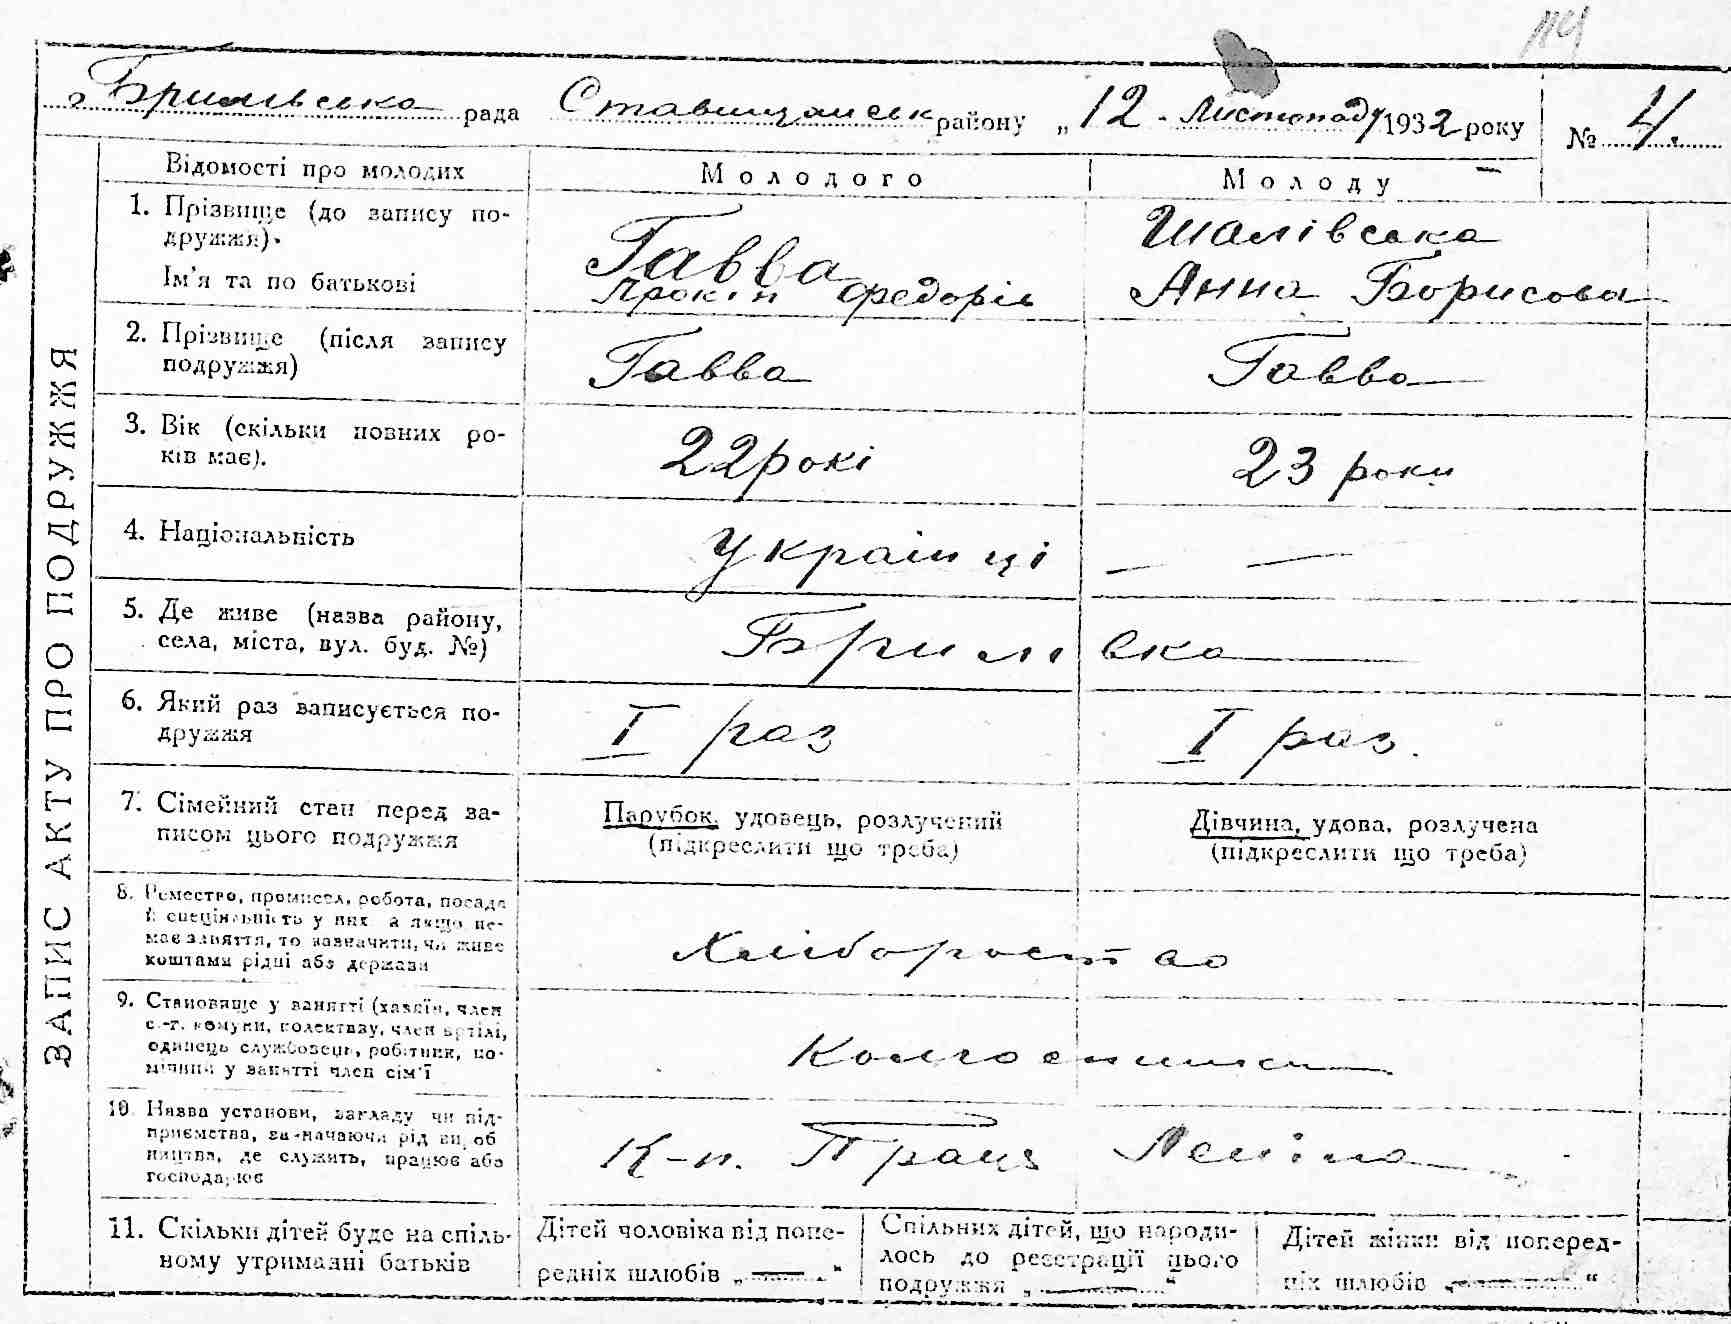 114
Брилівська рада Ставищанськ району „12 - Листопаду 1932 року № 4.
ЗАПИС АКТУ ПРО ПОДРУЖЖЯ
Відомості про молодих Молодого Молоду
1. Прізвище (до запису по-
дружжя).
Ім'я та по батькові
Гавва
Прокіп Федорів
Шалівська
Анна Борисова
2. Прізвище (після запису
подружжя)
Гавва Гавва
3. Вік (скільки повних ро-
ків має).
22 рокі 23 роки
4. Національність
Українці — —
5. Де живе (назва району,
села, міста, вул. буд. №)
Брилівка
6. Який раз записується по-
дружжя
I раз I раз.
7. Сімейний стан перед за-
писом цього подружжя
Парубок, удовець, розлучений
(підкреслити що треба)
Дівчина, удова, розлучена
(підкреслити що треба)
8. Ремество, промисел, робота, посада
й спеціяльність у них а якщо не-
має заняття, то зазначити, чи живе
коштами рідні або держави
Хліборобство
9. Становище у занятті (хазяїн, член
с.-г. комуни, колективу, член артілі,
одинець службовець, робітник, по-
мічний у занятті член сім'ї
Колгоспники
10. Назва установи, закладу чи під-
приємства, зазначаючи рід вироб
ництва, де служить, працює або
господарює
К-п. Праця Леніна
11. Скільки дітей буде на спіль-
ному утриманні батьків
Дітей чоловіка від попе-
редніх шлюбів „ — “
Спільних дітей, що народи-
лось до реєстрації цього
подружжя „ — “
Дітей жінки від поперед-
ніх шлюбів „ — “